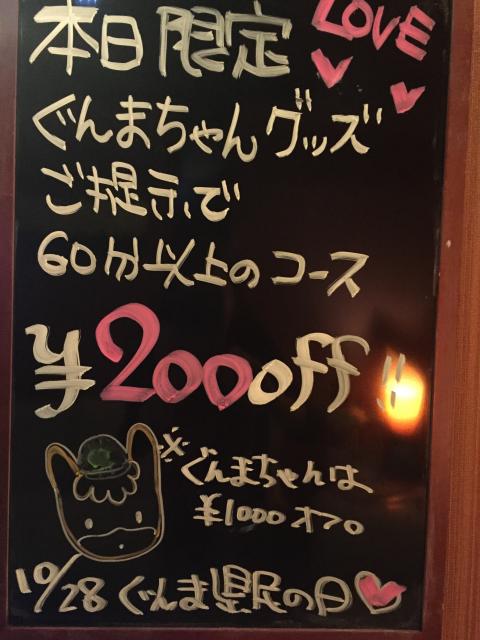 本日限定 LOVE
ぐんまちゃんグッズ
ご提示で
60分以上のコース
¥200off!!
※ぐんまちゃんは
¥1000オフ。
10/28ぐんま県民の日